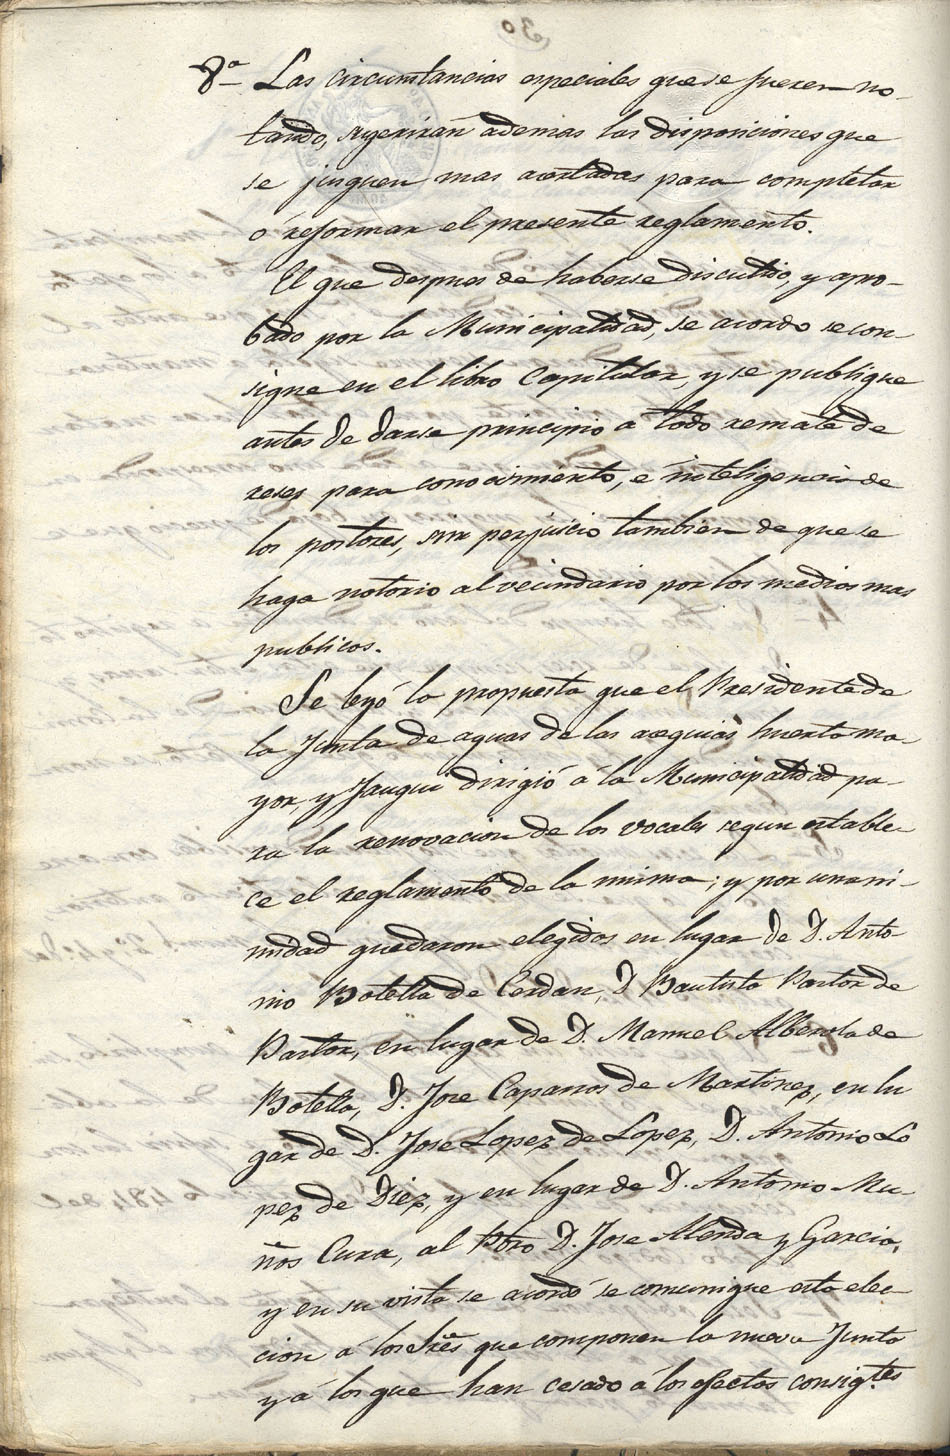 8ª Las circunstancias especiales que se fueren no-
tando, sugerirán ademas las disposiciones que
se jusguen mas acertadas para completar
ó reformar el presente reglamento.
El que despues de haberse discutido, y apro-
bado por la Municipalidad, se acordo se con-
signe en el libro Capitular, y se publique
antes de darse principio a todo remate de
reses para conocimiento, é inteligencia de
los postores, sin perjuicio tambien de que se
haga notorio al vecindario por los medios mas
publicos.
Se leyó la propuesta que el Presidente de
la Junta de aguas de las acequias huerta ma-
yor, y Jauqui dirigió á la Municipalidad pa-
ra la renovacion de los vocales segun estable-
ce el reglamento de la misma; y por unani-
midad quedaron elegidos en lugar de D. Anto
nio Botella de Cerdan, D Bautista Pastor de
Pastor, en lugar de D. Manuel Alberola de
Botella, D. Jose Caparros de Martinez, en lu
gar de D. Jose Lopez de Lopez, D. Antonio Lo
pez de Diez, y en lugar de D. Antonio Mu-
ños Cura, al Pbro D. Jose Alenda y Garcia,
y en su vista se acordó se comunique esta elec-
cion á los Sres que componen la nueva Junta
y á los que han cesado á los efectos consigtes